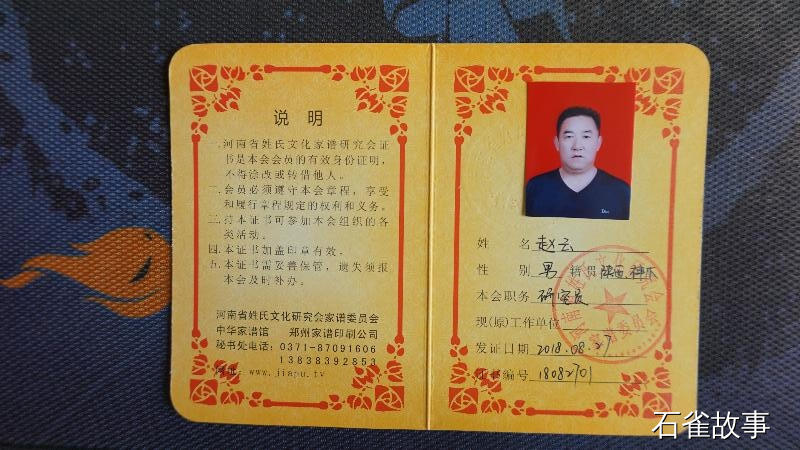 说明
一.河南省姓氏文化家谱研究会证
书是本会会员的有效身份证明，
不得涂改或转借他人。
二.会员必须遵守本会章程，享受
和履行章程规定的权利和义务。
三.持本证书可参加本会组织的各
类活动。
四.本证书加盖印章有效。
五.本证书需妥善保管，遗失须报
本会及时补办。
河南省姓氏文化研究会家谱委员会
中华家谱馆 郑州家谱印刷公司
秘书处电话：0371-87091606
13838392853
网址：www.jiapu.tv
姓名 赵云
性别 男 籍贯 陕西 神木
本会职务 研究员
现(原)工作单位
发证日期 2018.08.27
证书编号 18082701
石雀故事